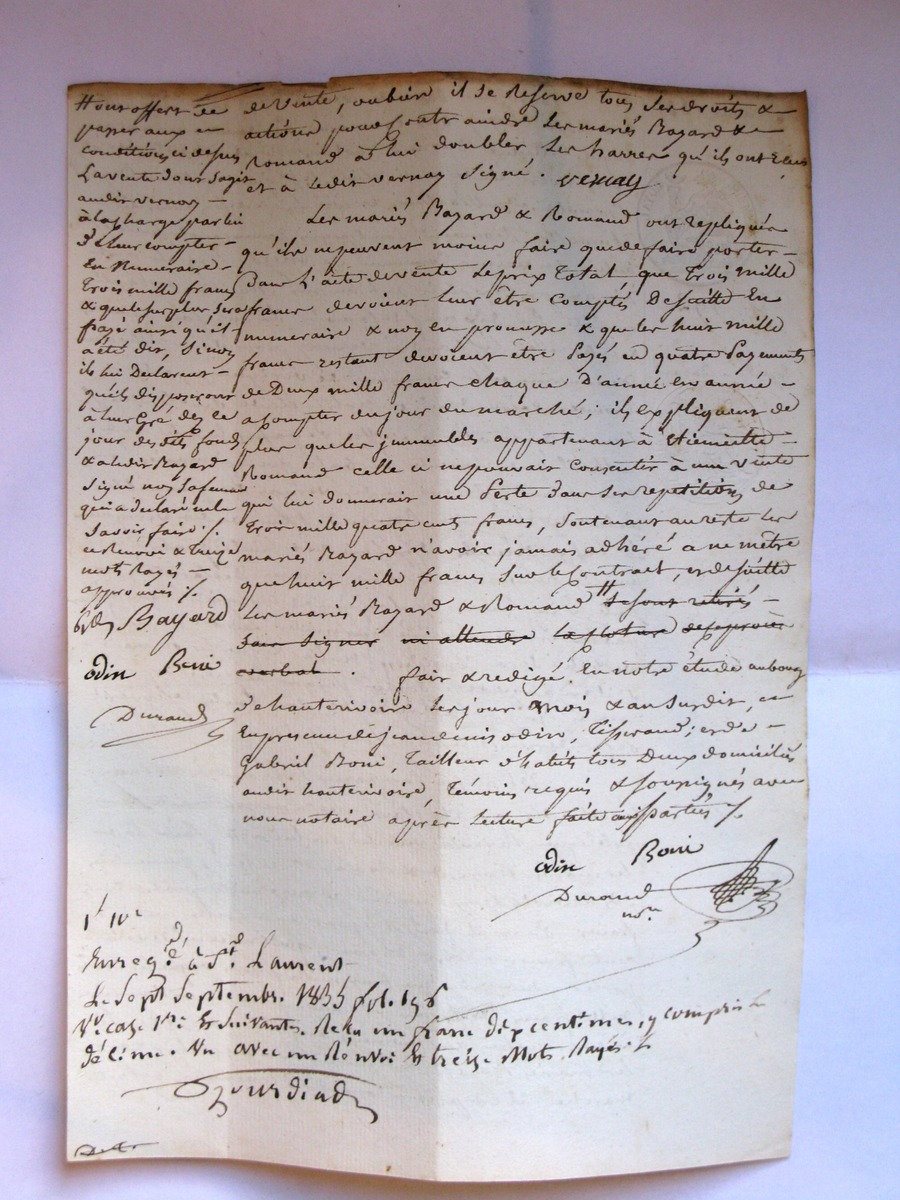 de vente, oubien il se reserve tous ses droits &
actions pour contraindre les mariés Bayard &
Romand à lui doubler les harres qu'ils ont reçus
et à ledit vernay signé. Vernay
Les mariés Bayard & Romand ont repliqués
qu'ils ne peuvent moins faire que de faire porter
dans l'acte de vente le prix total que trois mille
francs devoient leur être comptés de suitte En
numeraire & non en promesse & que les huit mille
francs restant devoient être payés en quatre payements
de Deux mille francs chaque d'année en année
a compter du jour du marché; ils expliquent de
plus que les immeubles appartenant à Etiennette
Romand celle ci ne pouvait consentir à une vente
qui lui donnerait une perte dans ses repetitions de
trois mille quatre cents francs, soutenant au reste les
mariés Bayard n'avoir jamais adhéré a ne metre
que huit mille francs sur le Contract, et de suitte
les mariés Bayard & Romand # se sont retirés
sans signer ni attendre la cloture de ce procès
verbal. fait & redigé En notre étude au bourg
d'hauterivoire les jour mois & an susdit, en
En presence de jean denis odin, Tisserand; et de
Gabriel Boni, Tailleur d'habits tous Deux domiciliés
audit hauterivoire, Témoins requis & soussignés avec
nous notaire après lecture faite aux parties ./.
odin Boni
Durand
nore
# ont offert de
passer aux
conditions ci dessus
La vente dont s'agit
audit vernay
à la charge par lui
de leur compter
En Numeraire
trois mille francs
& que le surplus sera
payé ainsi qu'il
a été dit, sinon
ils lui Declarent
qu'ils disposeront
à leur gré dez ce
jour desdits fonds
& a ledit Bayard
signé non sa femme
qui a declaré ne le
savoir faire ./.
ce Renvoi & treize
mots Rayés
approuvés ./.
Bayard
odin Boni
Durand
Enregé à St. Laurent
Le Sept Septembre 1835 fol. 196
vo. case 1re Et Suivantes. Reçu un franc dix centimes, y compris le
décime. Vu avec un Renvoi Et treize Mots Rayés